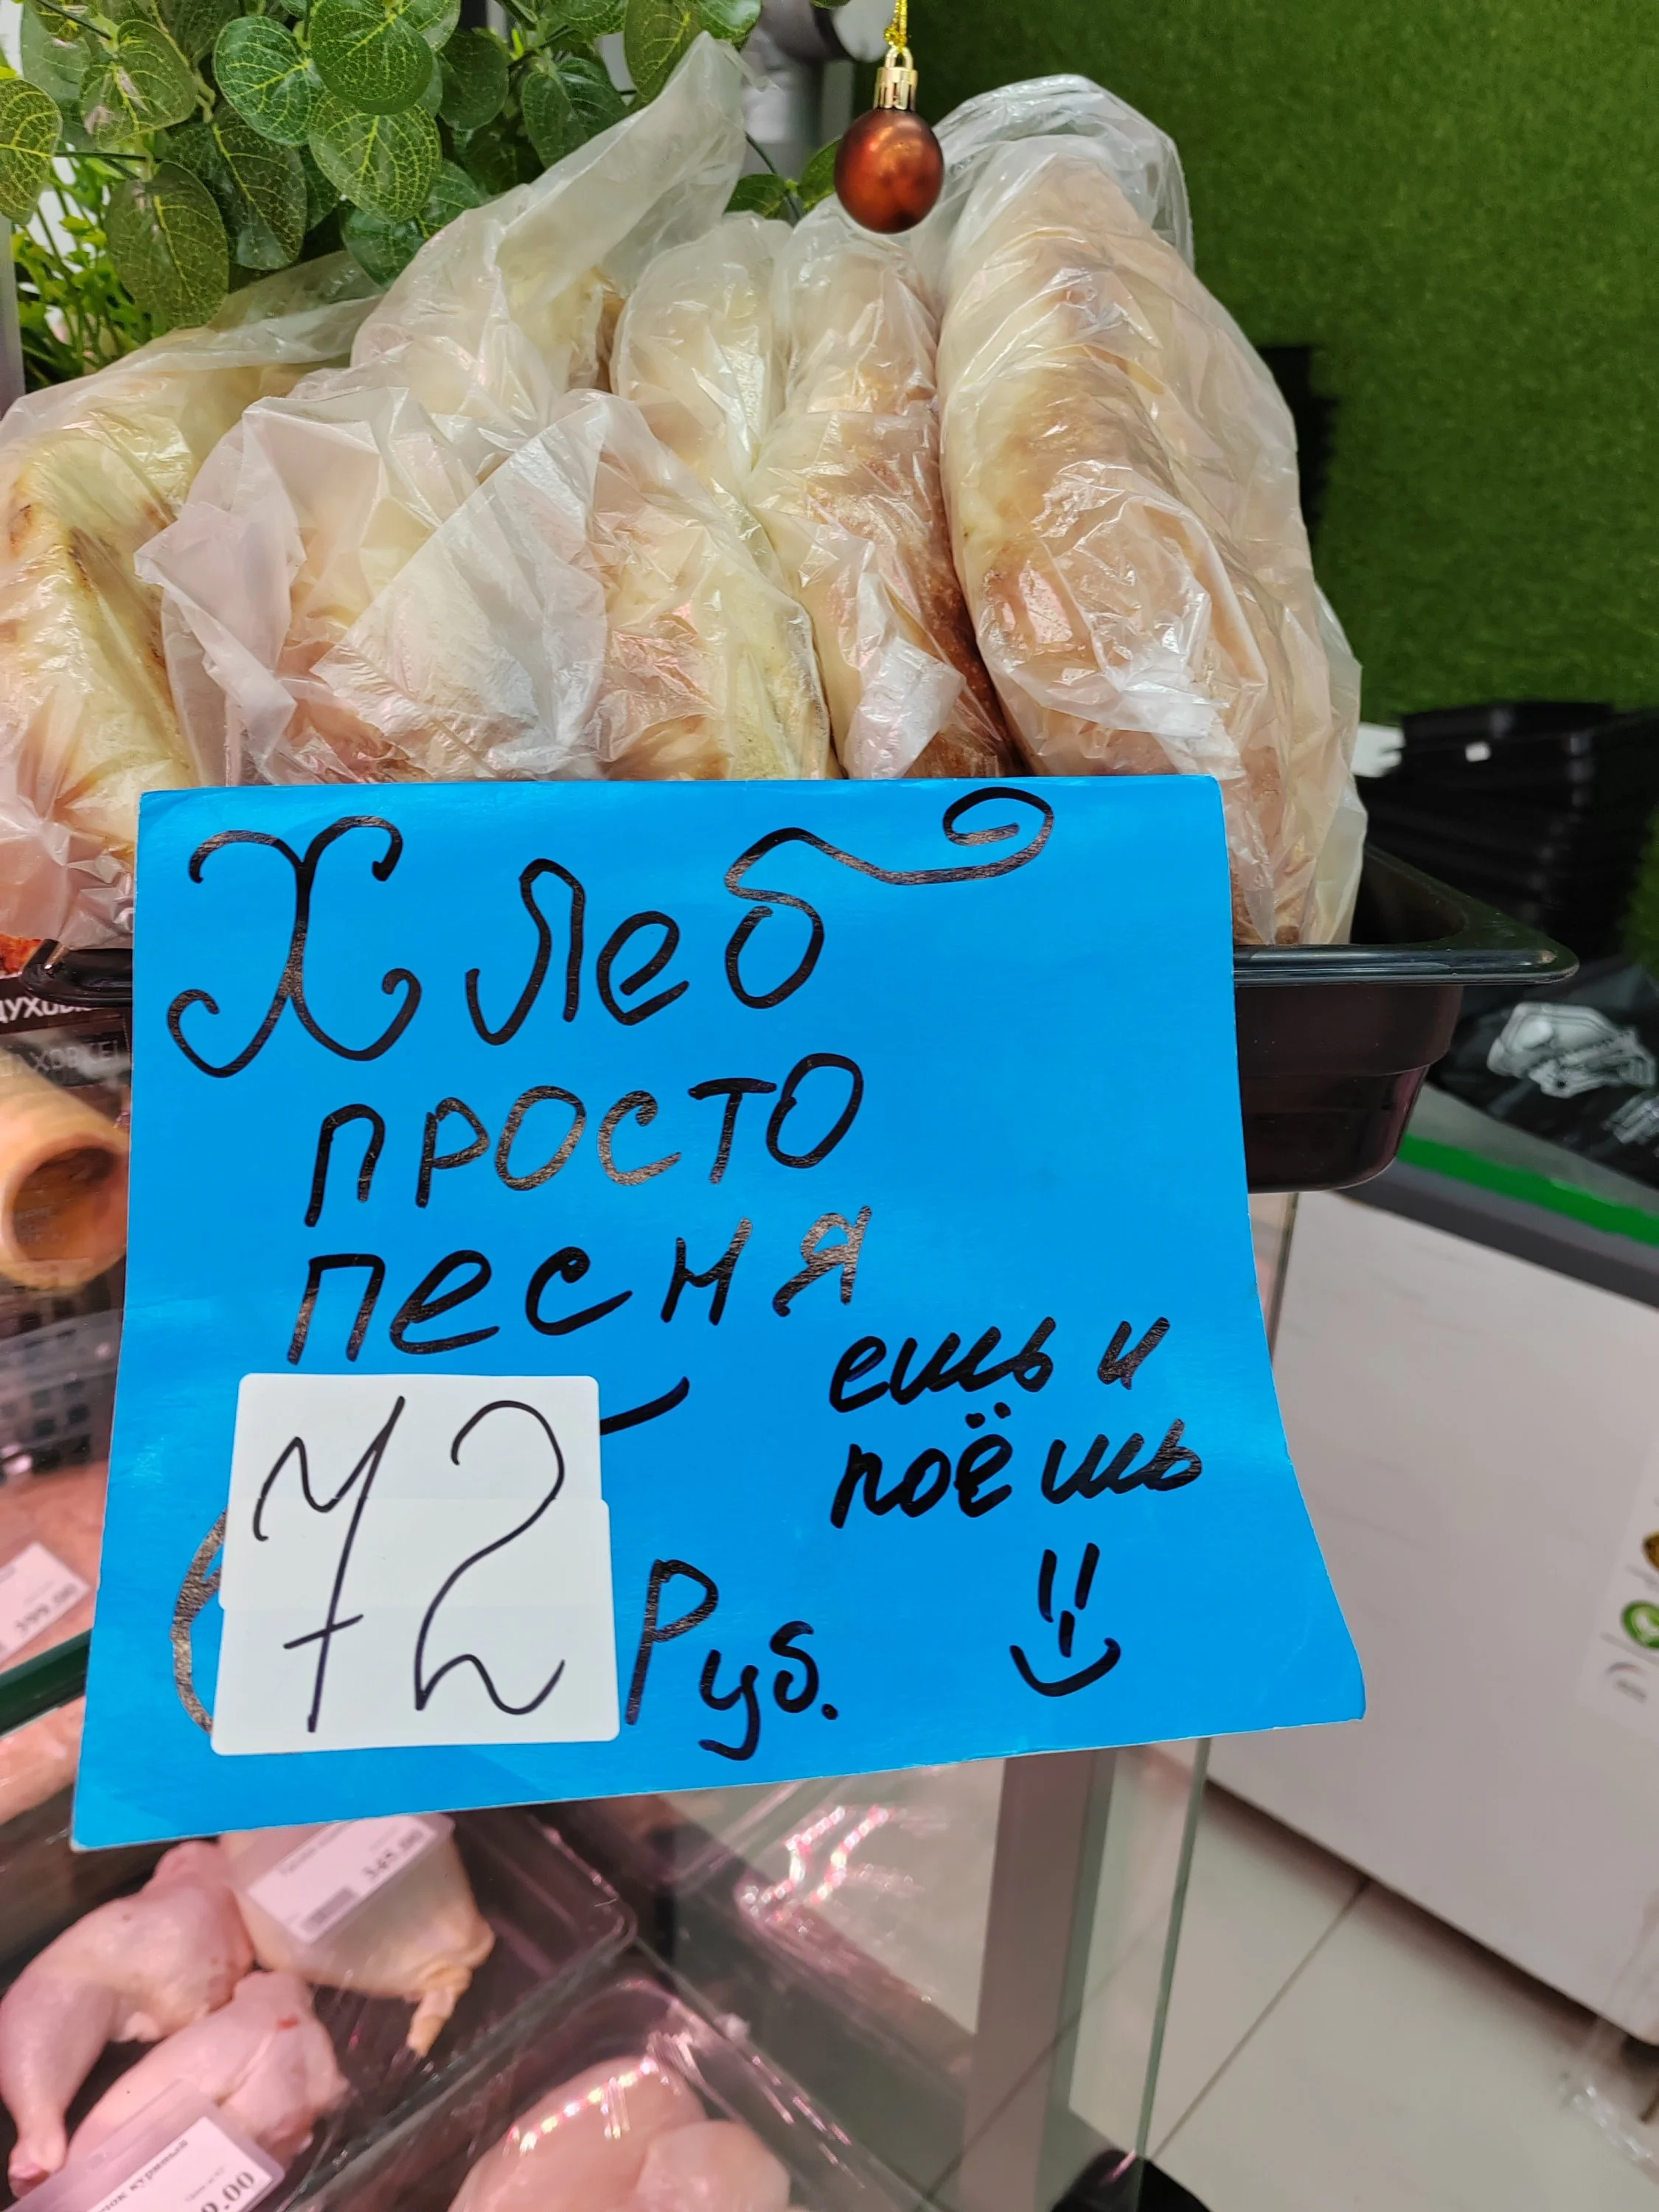 Хлеб
просто
песня
ешь и
поёшь
72
Руб.
345.00